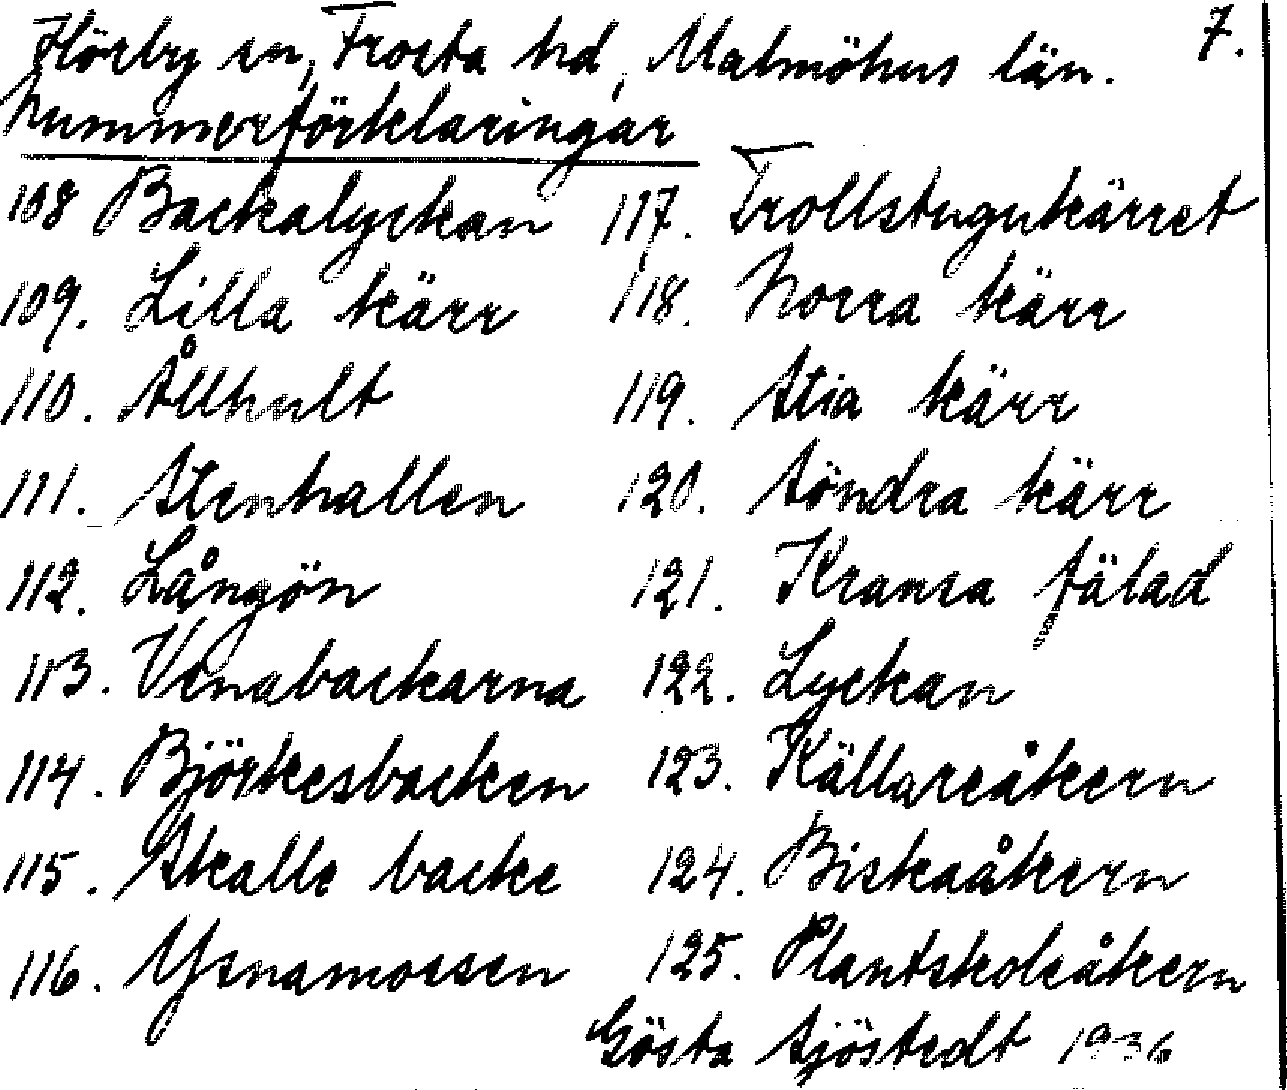 Hörby sn, Frosta hd, Malmöhus län. 7.
Nummerförklaringar
108 Backalyckan
109. Lilla kärr
110. Ållhult
111. Stenhallen
112. Långön
113. Venabackarna
114. Björkesbacken
115. Skalle backe
116. Ysnamossen
117. Trollstugukärret
118. Norra kärr
119. Stia kärr
120. Söndra kärr
121. fälad
122. Lyckan
123. Källareåkern
124. Biskaåkern
125. Plantskoleåkern
Gösta Sjöstedt 1936